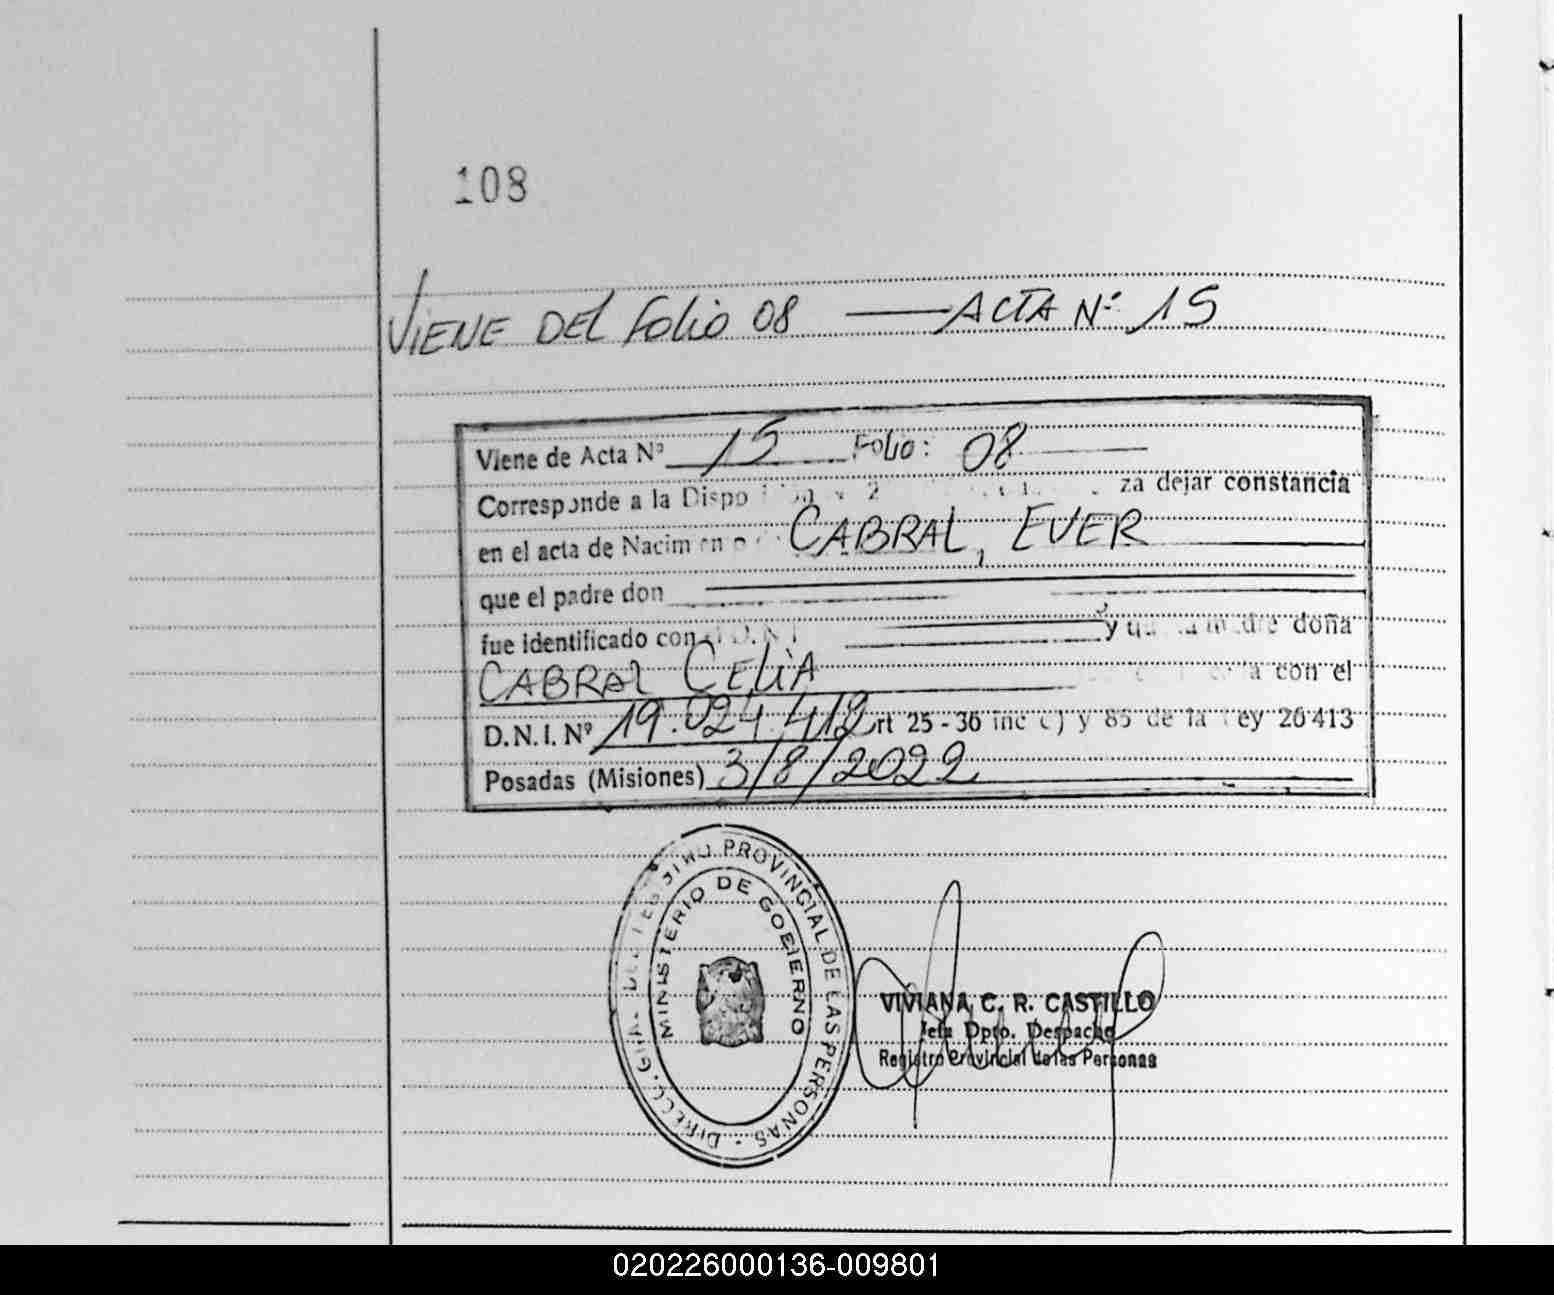 108
VIENE DEL FOLIO 08 — ACTA Nº 15
Viene de Acta Nº 15 Folio: 08
Corresponde a la za dejar constancia
en el acta de CABRAL, EVER
que el padre don
fue identificado con y doña
CABRAL CELIA con el
D.N.I. Nº 19.024.412 rt 25 - 36 inc c) y 85 de la ey 26 413
Posadas (Misiones) 3/8/2022
DIRECC. GRAL. PROVINCIAL DE LAS PERSONAS
MINISTERIO DE GOBIERNO
VIVIANA C. R. CASTILLO
Jefa Dpto. Despacho
Registro Provincial de las Personas
020226000136-009801